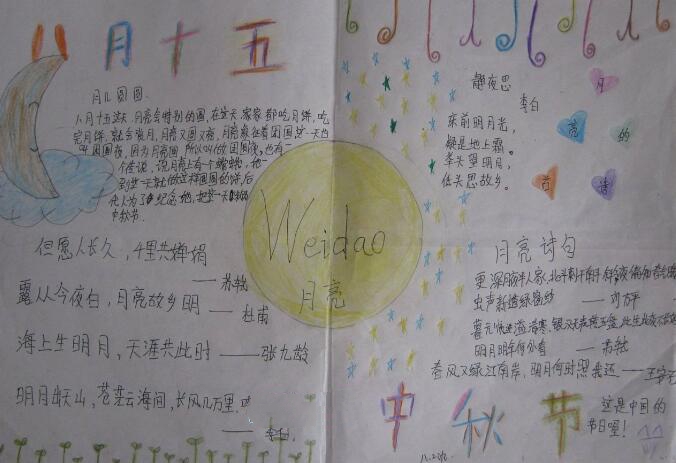 八月十五
月儿圆圆
八月十五这天,月亮会特别的圆,在这天家家都吃月饼,吃
完月饼,就会赏月,月亮又圆又亮,月亮象征着团圆
叫团圆夜,因为月亮圆,所以叫做团圆夜,也有一
个传说,说月亮上有个嫦娥,他一
到这一天就做这样圆圆的饼,后
代人为了纪念她,把这一天
中秋节.
但愿人长久,千里共婵娟
——苏轼
露从今夜白,月亮故乡明
——杜甫
海上生明月,天涯共此时——张九龄
明月出天山,苍茫云海间,长风几万里,
——李白.
Weidao
月亮
静夜思
李白
床前明月光,
疑是地上霜。
举头望明月,
低头思故乡。
月
亮
的
古
诗
月亮诗句
更深月色半人家,北斗阑干南斗斜
虫声新透绿窗纱——刘方平
暮云收尽溢清寒,银汉无声转玉盘,此生此夜不
明月明年何处看——苏轼
春风又绿江南岸,明月何时照我还——王安石
中秋节
这是中国的
节日喔!